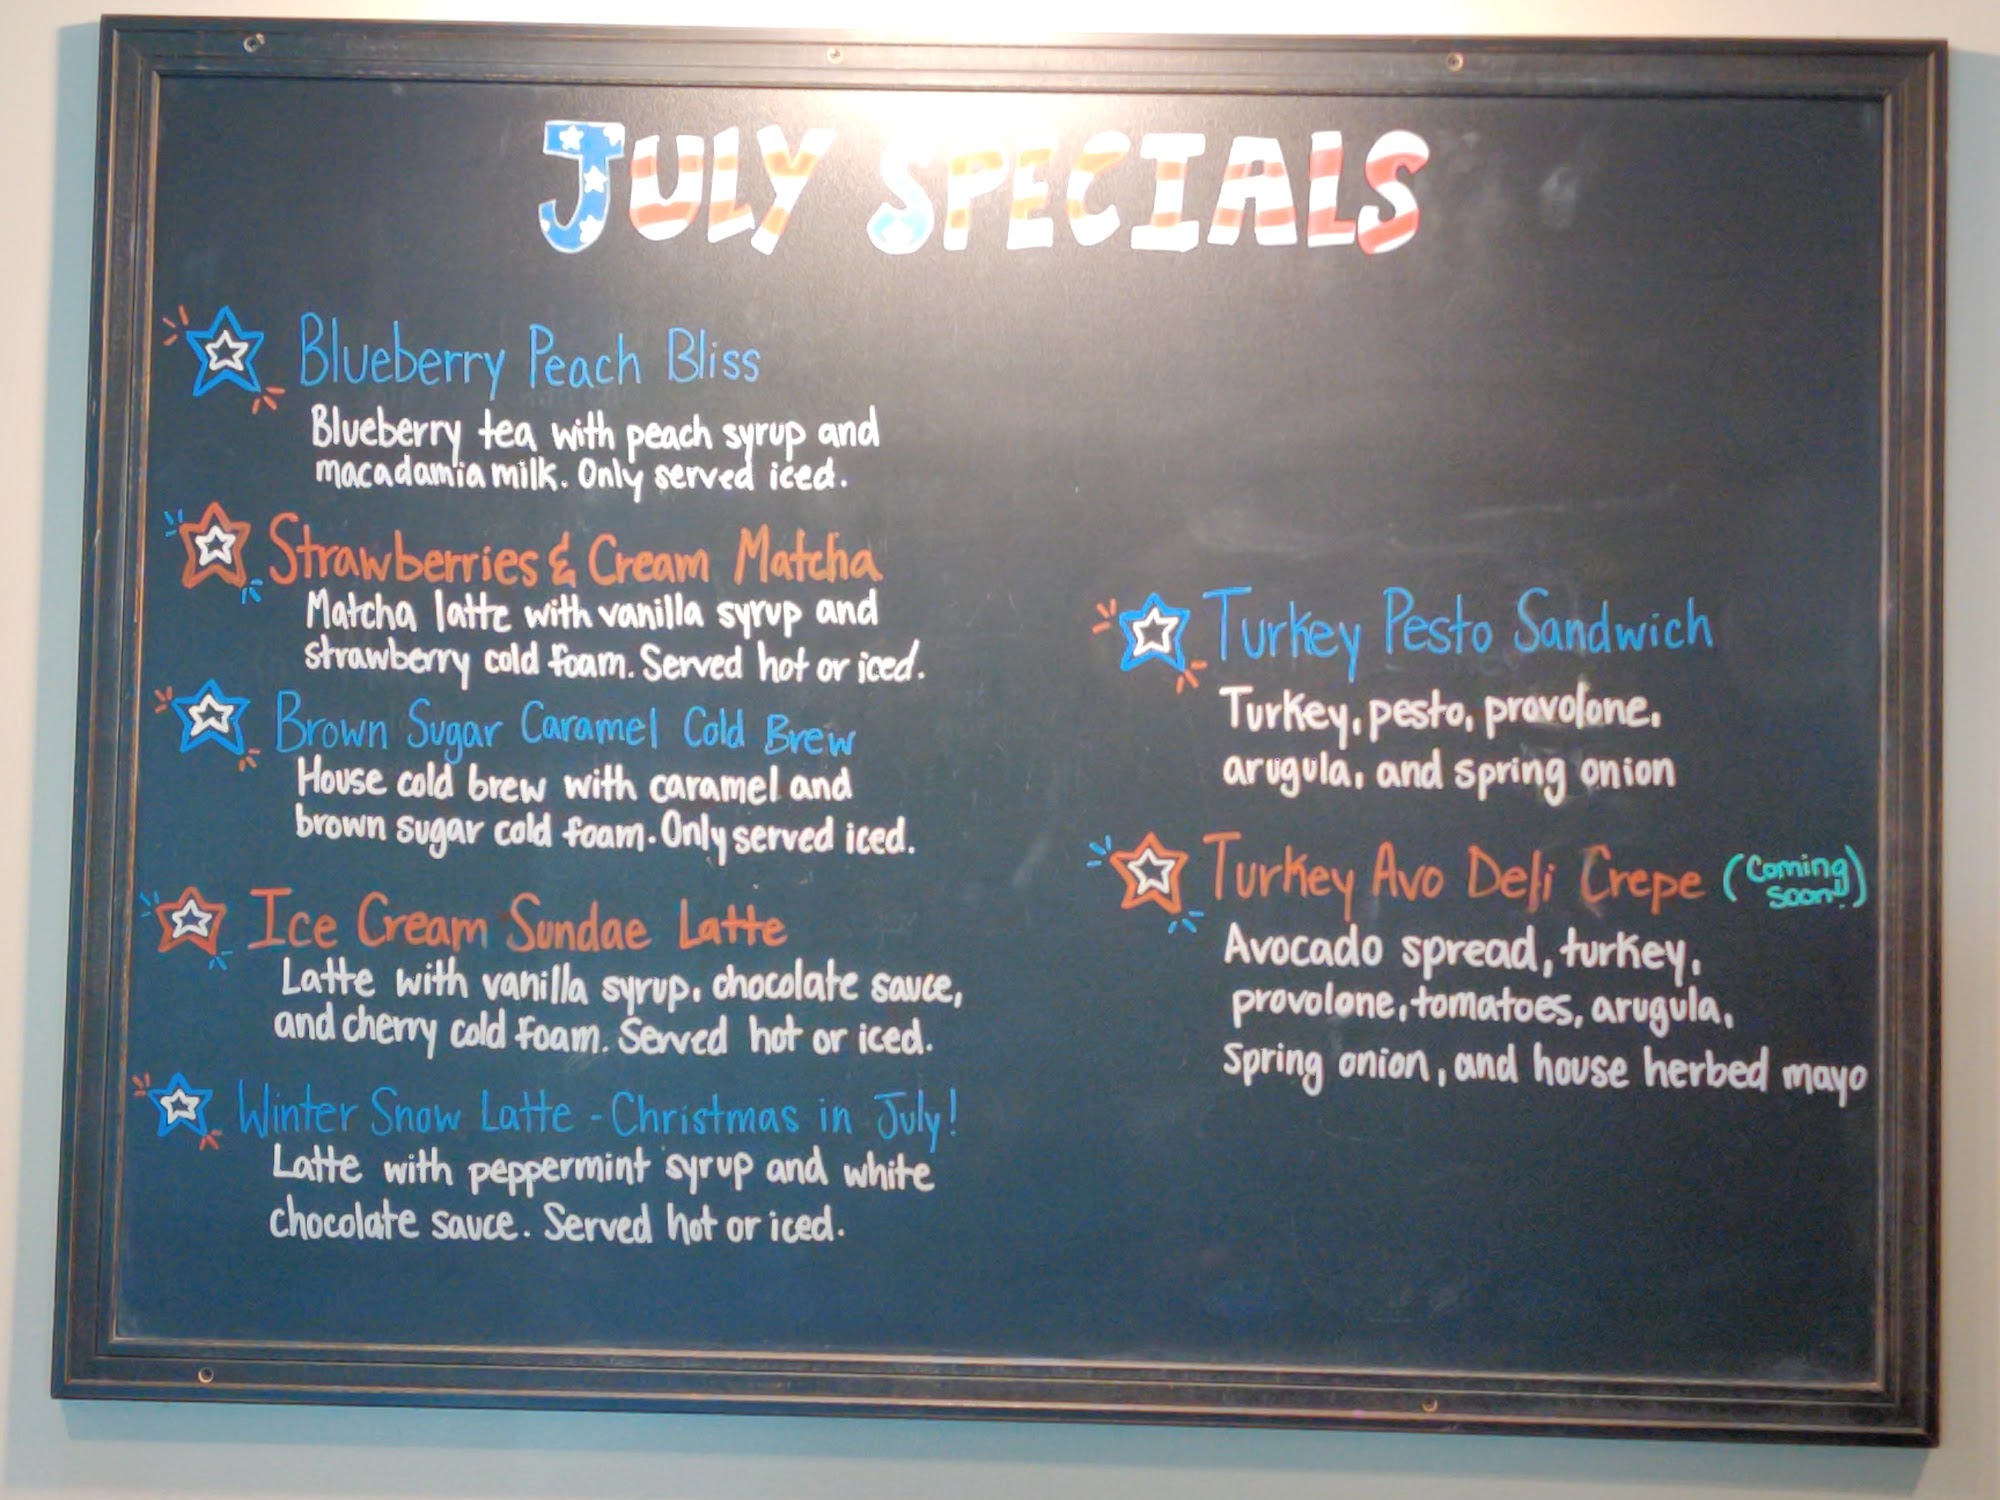 JULY SPECIALS
Blueberry Peach Bliss
Blueberry tea with peach syrup and
macadamia milk. Only served iced.
Strawberries & Cream Matcha
Matcha latte with vanilla syrup and
strawberry cold foam. Served hot or iced.
Brown Sugar Caramel Cold Brew
House cold brew with caramel and
brown sugar cold foam. Only served iced.
Ice Cream Sundae Latte
Latte with vanilla syrup, chocolate sauce,
and cherry cold foam. Served hot or iced.
Winter Snow Latte - Christmas in July!
Latte with peppermint syrup and white
chocolate sauce. Served hot or iced.
Turkey Pesto Sandwich
Turkey, pesto, provolone,
arugula, and spring onion
Turkey Avo Deli Crepe (Coming
Soon!!)
Avocado spread, turkey,
provolone, tomatoes, arugula,
spring onion, and house herbed mayo